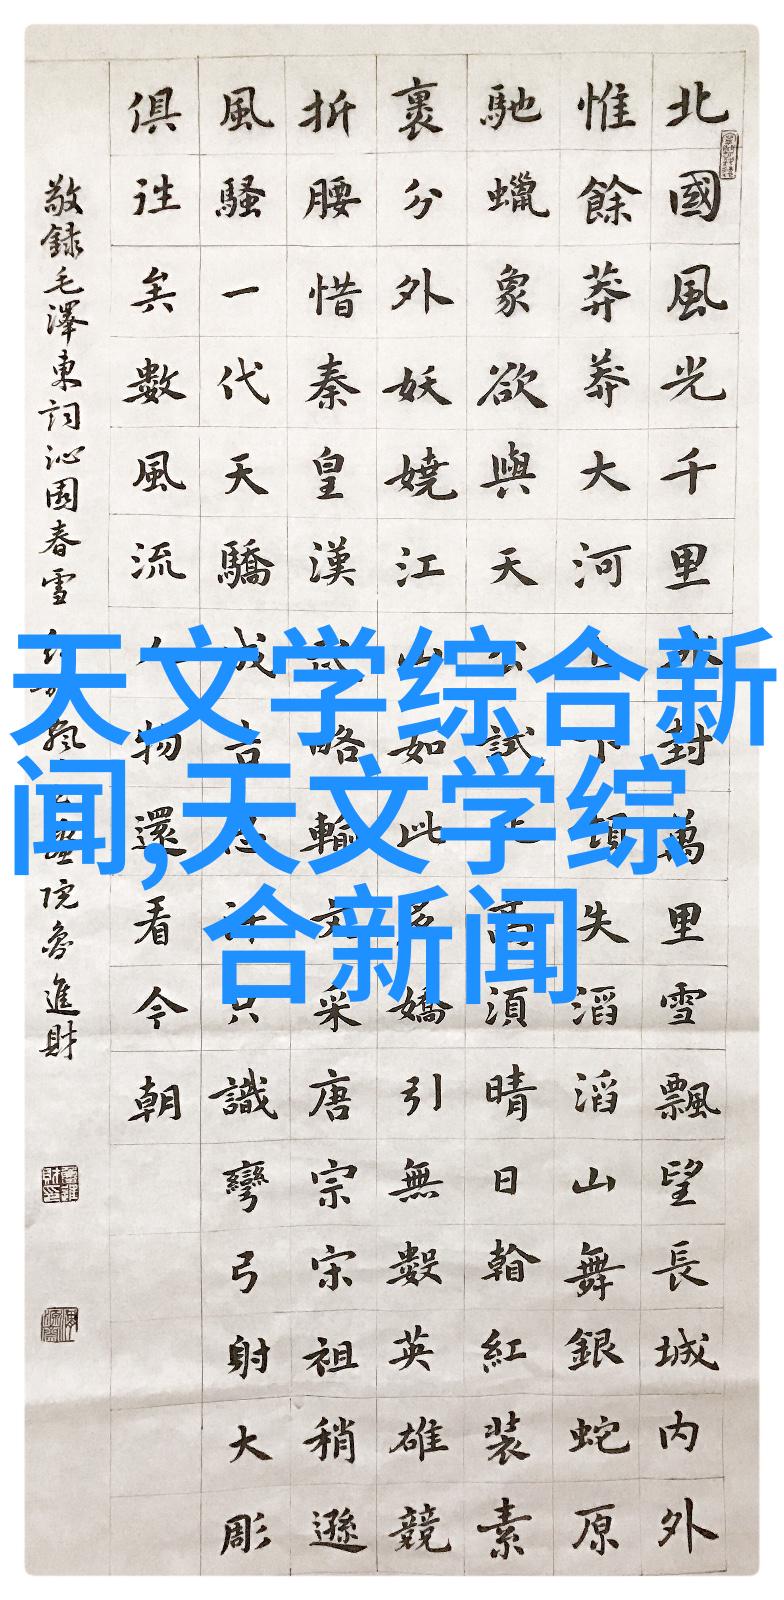 北國風光千里冰封萬里雪飄望長城內外
惟餘莽莽大河上下頓失滔滔山舞銀蛇原
馳蠟象欲與天公試比高須晴日看紅裝素
裹分外妖嬈江山如此多嬌引無數英雄競
折腰惜秦皇漢武略輸文采唐宗宋祖稍遜
風騷一代天驕成吉思汗只識彎弓射大彫
俱往矣數風流人物還看今朝
敬録毛澤東詞沁園春雪 院魯進財
天文学综合新
闻,天文学综
合新闻